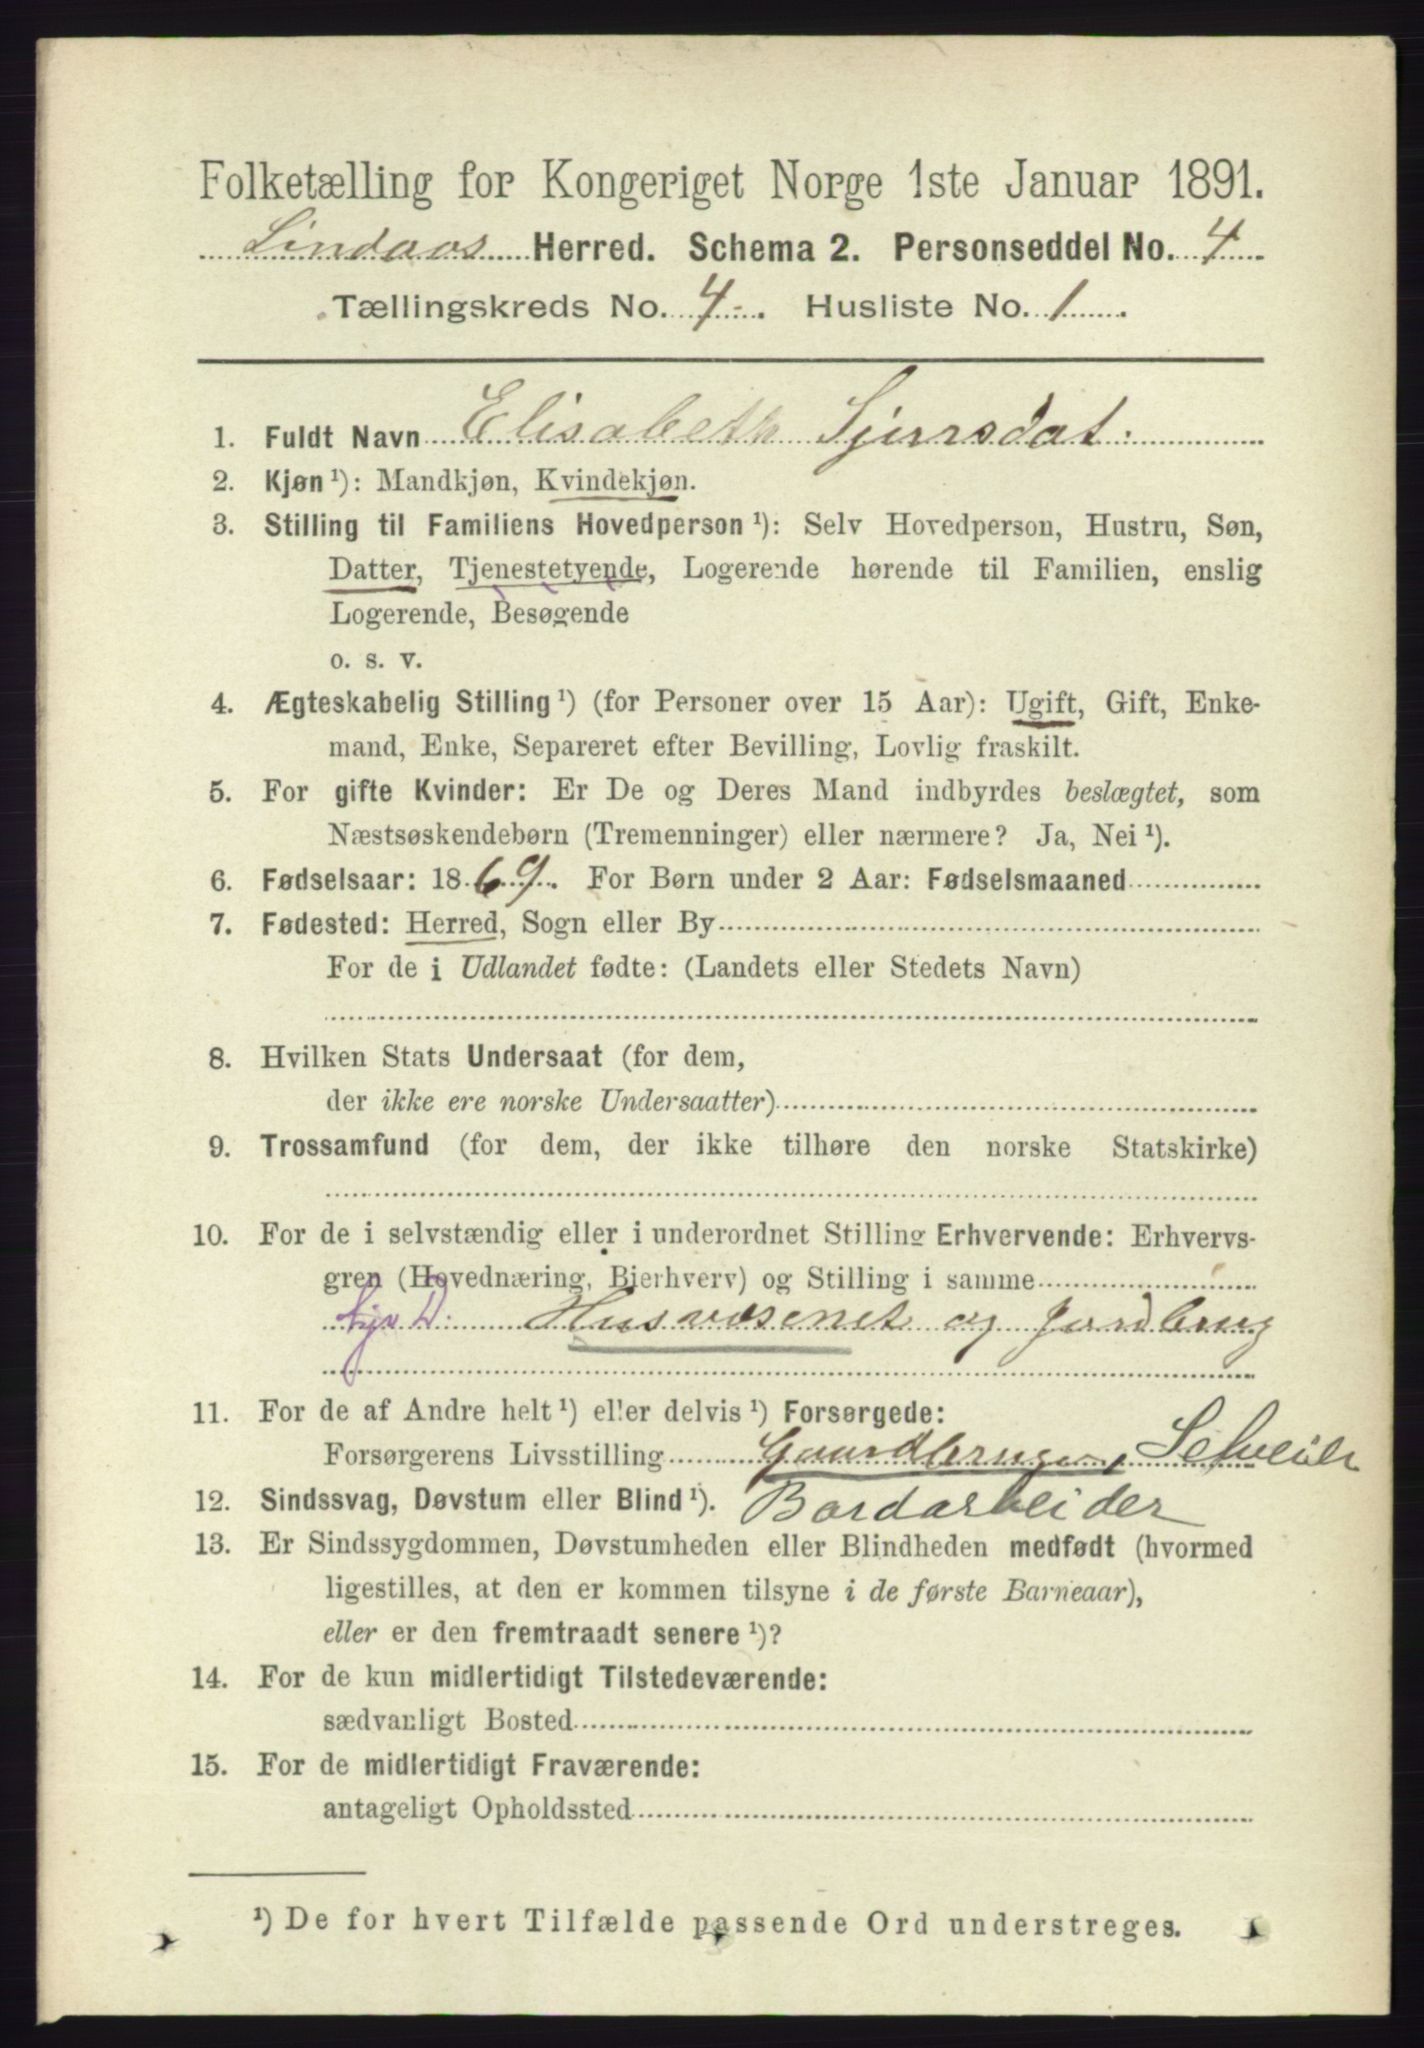 Folketælling for Kongeriget Norge 1ste Januar 1891.
Lindaas Herred. Schema 2. Personseddel No. 4
Tællingskreds No. 4. Husliste No. 1.
1. Fuldt Navn Elisabeth Sjursdat.
2. Kjøn¹): Mandkjøn, Kvindekjøn.
3. Stilling til Familiens Hovedperson¹): Selv Hovedperson, Hustru, Søn,
Datter, Tjenestetyende, Logerende hørende til Familien, enslig
Logerende, Besøgende
o. s. v.
4. Ægteskabelig Stilling¹) (for Personer over 15 Aar): Ugift, Gift, Enke-
mand, Enke, Separeret efter Bevilling, Lovlig fraskilt.
5. For gifte Kvinder: Er De og Deres Mand indbyrdes beslægtet, som
Næstsøskendebørn (Tremenninger) eller nærmere? Ja, Nei¹).
6. Fødselsaar: 1869. For Børn under 2 Aar: Fødselsmaaned
7. Fødested: Herred, Sogn eller By
For de i Udlandet fødte: (Landets eller Stedets Navn)
8. Hvilken Stats Undersaat (for dem,
der ikke ere norske Undersaatter)
9. Trossamfund (for dem, der ikke tilhøre den norske Statskirke)
10. For de i selvstændig eller i underordnet Stilling Erhvervende: Erhvervs-
gren (Hovednæring, Bierhverv) og Stilling i samme
Husvæsenet og Jordbrug
11. For de af Andre helt¹) eller delvis¹) Forsørgede:
Forsørgerens Livsstilling Gaardbruger, Selveier
12. Sindssvag, Døvstum eller Blind¹). Bordarbeider
13. Er Sindssygdommen, Døvstumheden eller Blindheden medfødt (hvormed
ligestilles, at den er kommen tilsyne i de første Barneaar),
eller er den fremtraadt senere¹)?
14. For de kun midlertidigt Tilstedeværende:
sædvanligt Bosted
15. For de midlertidigt Fraværende:
antageligt Opholdssted
¹) De for hvert Tilfælde passende Ord understreges.